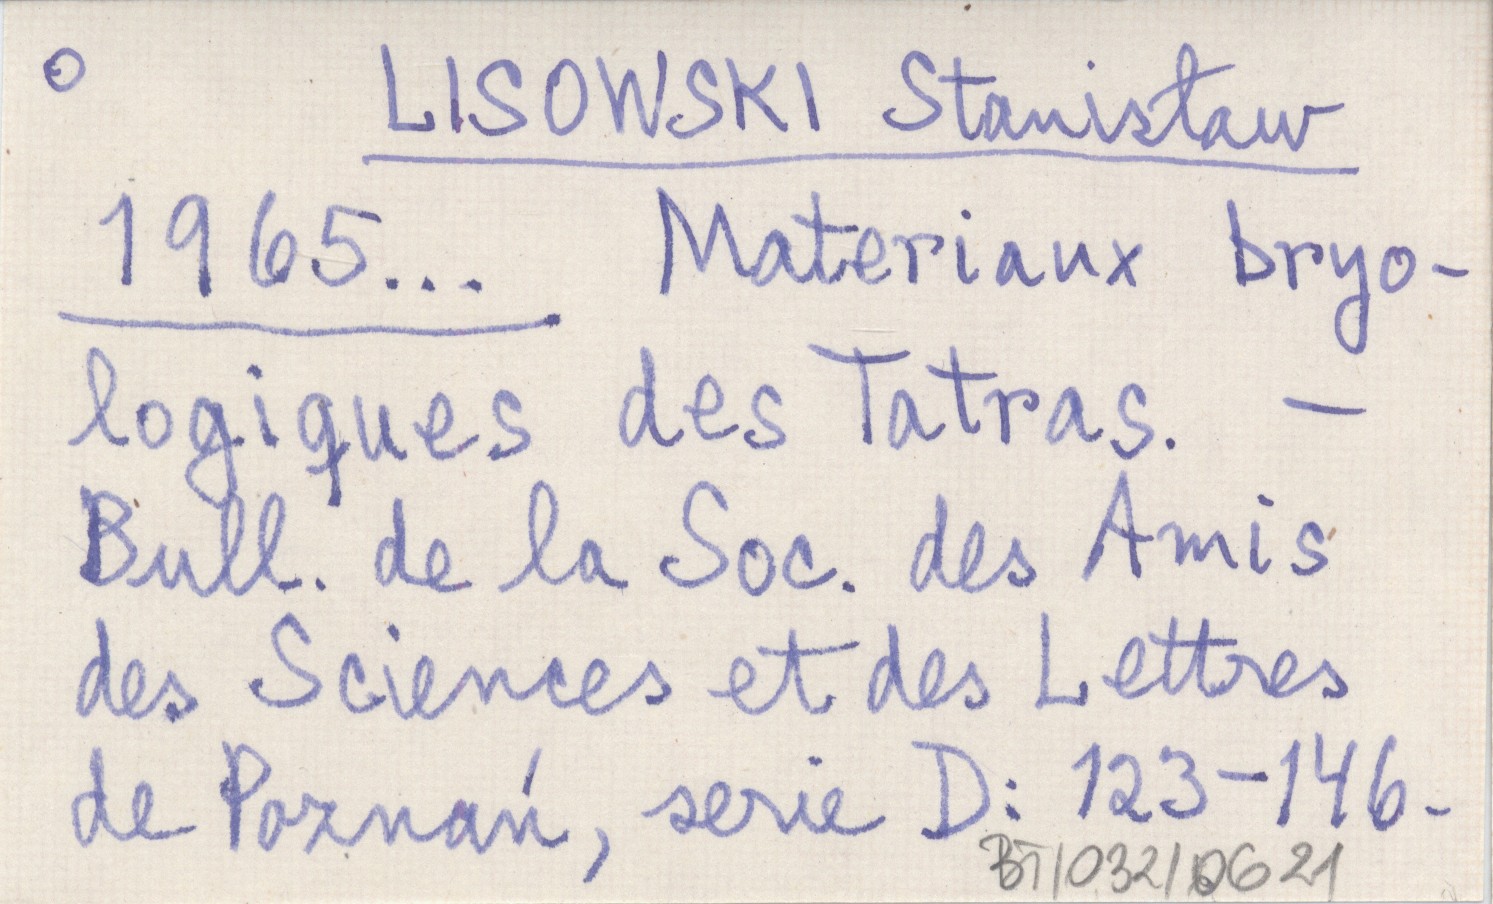 LISOWSKI Stanisław
1965... Materiaux bryo-
logiques des Tatras. –
Bull. de la Soc. des Amis
des Sciences et des Lettres
de Poznań, serie D: 123-146.-
BT/032/0621